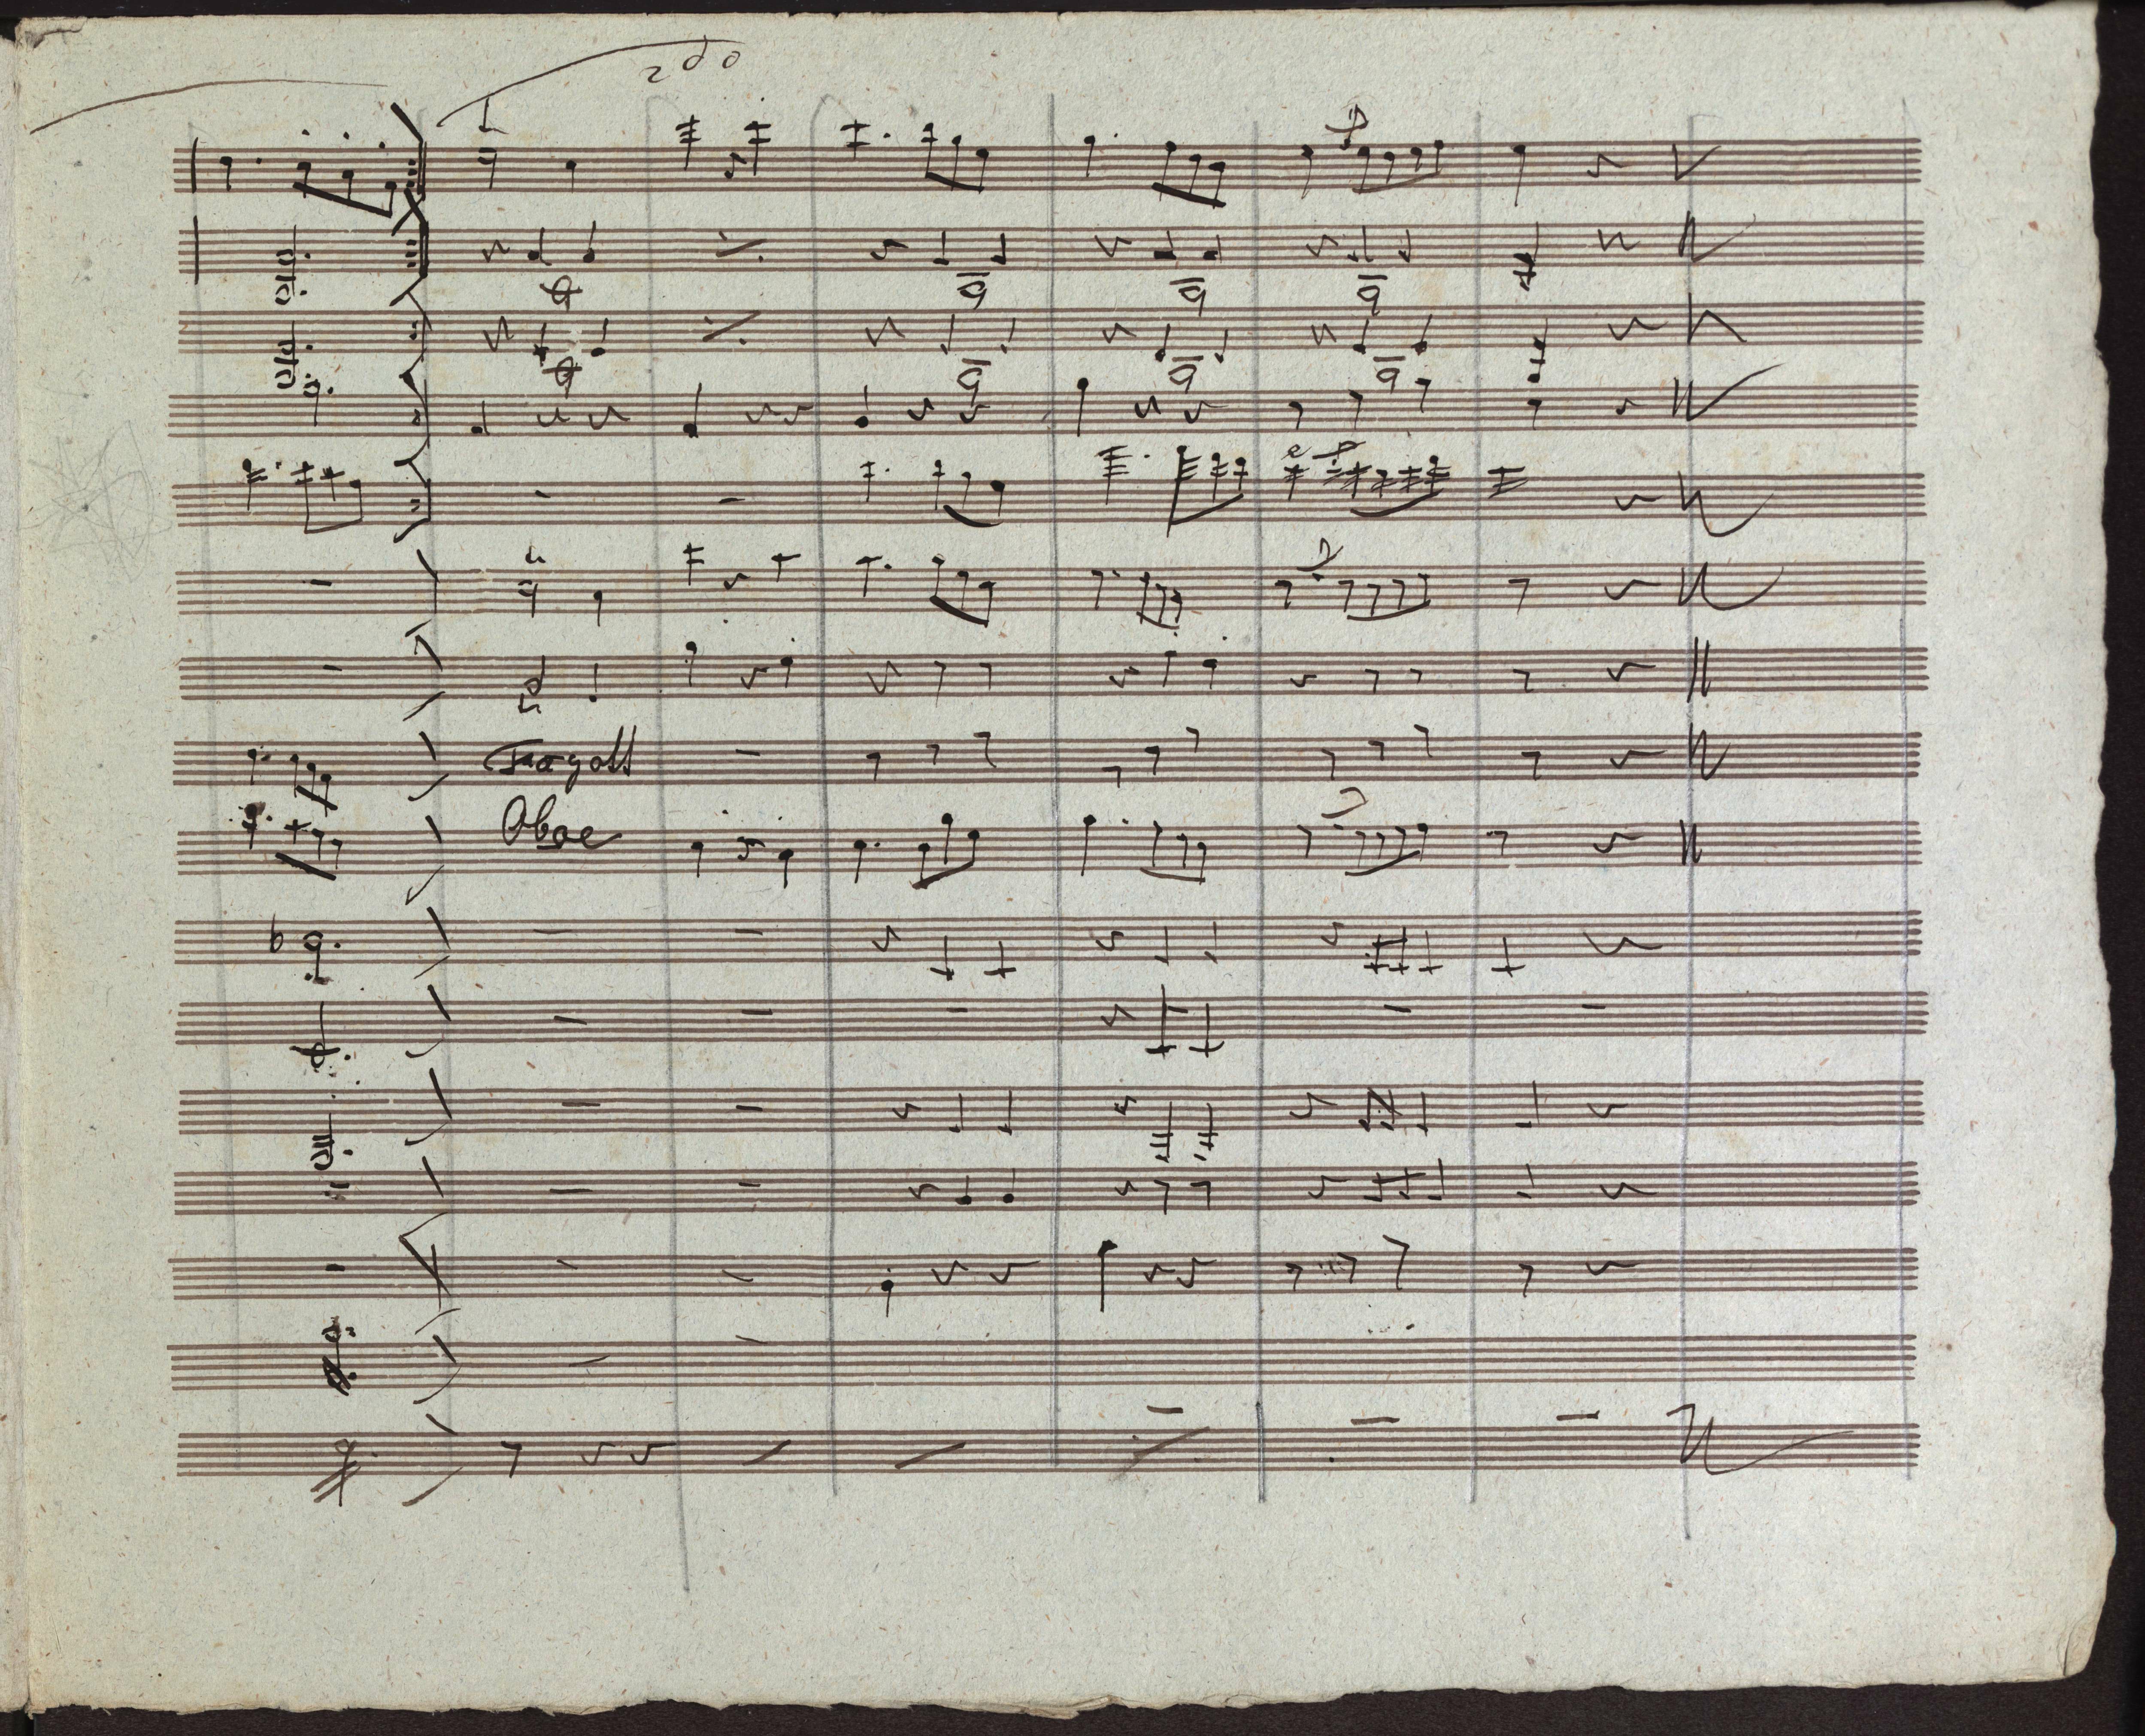 2do
Fagott
Oboe